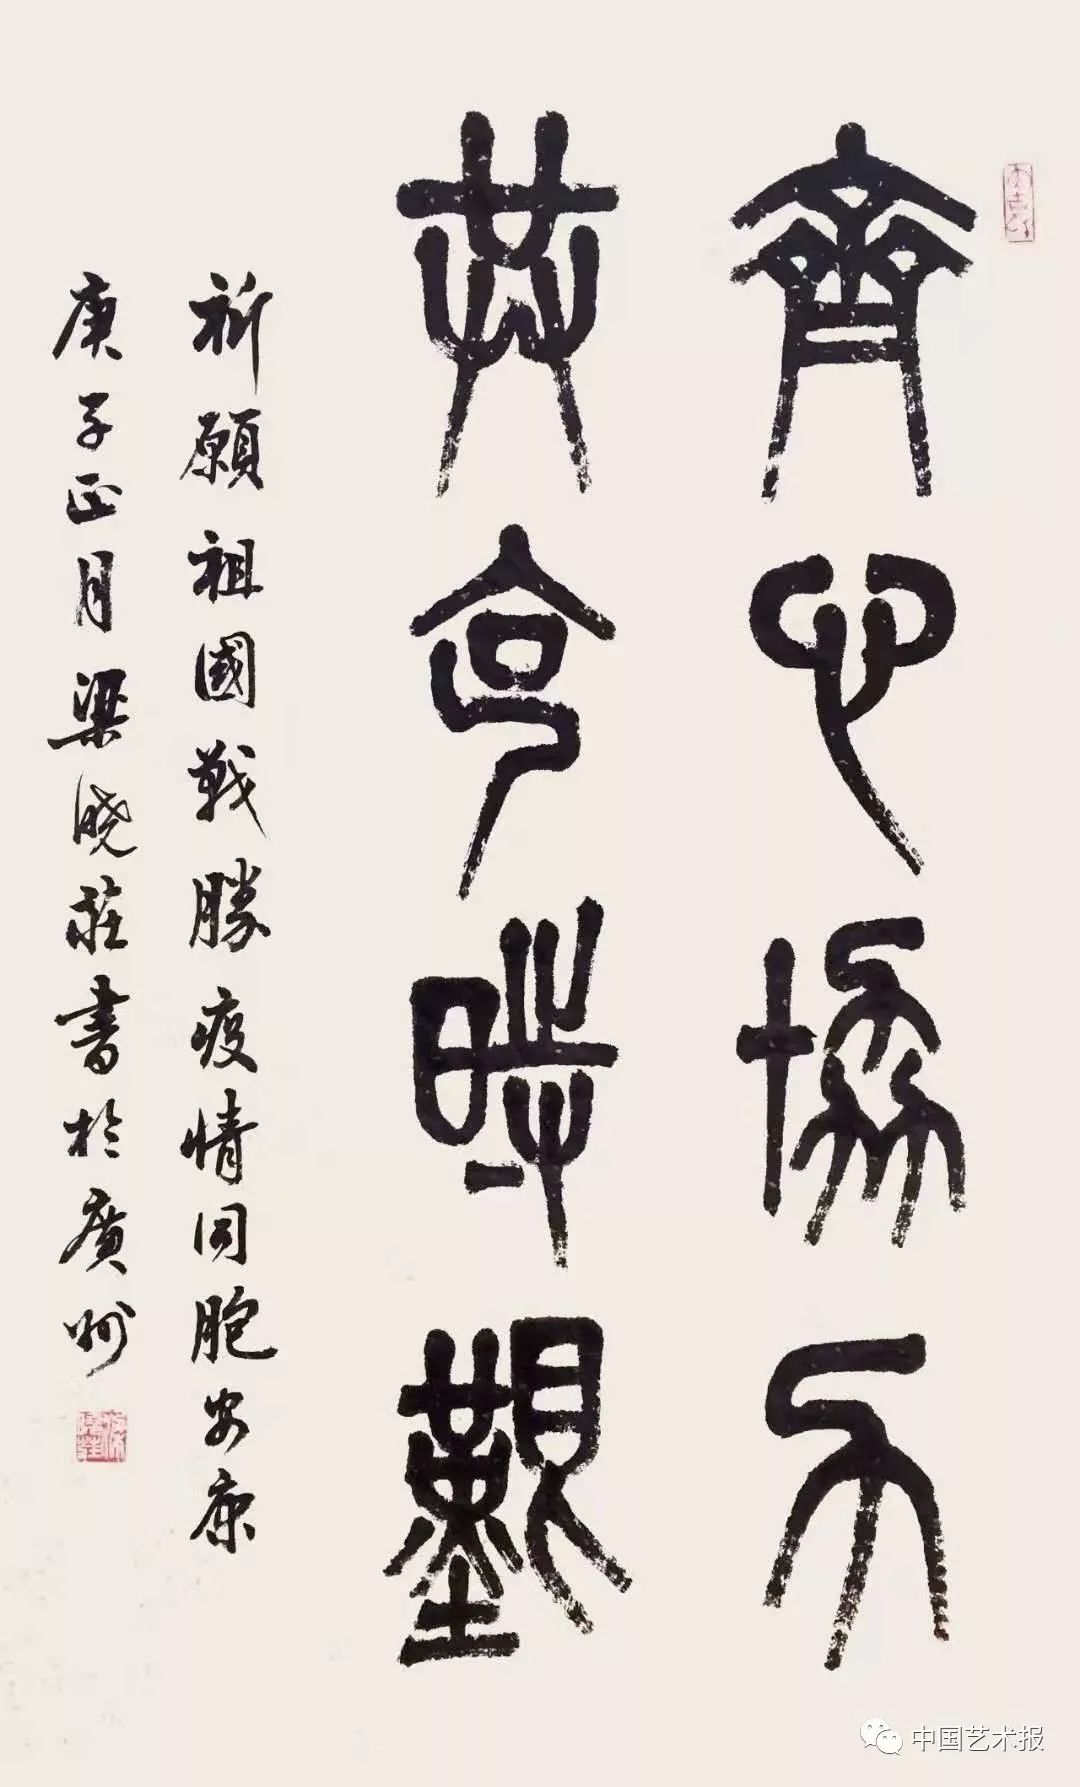 齊心協力
共克時艱
祈願祖國戰勝疫情同胞安康
庚子正月梁晓莊書於廣州
中国艺术报